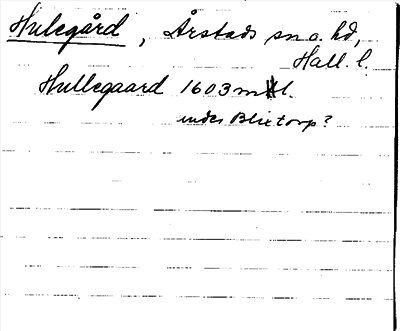 Hulegård, Årstads sn o. hd,
Hall. l.
Hullegaard 1603 mtl.
under Blixtorp?